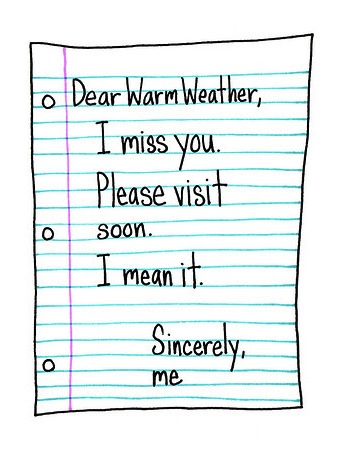 Dear Warm Weather,
I miss you.
Please visit
soon.
I mean it.
Sincerely,
me